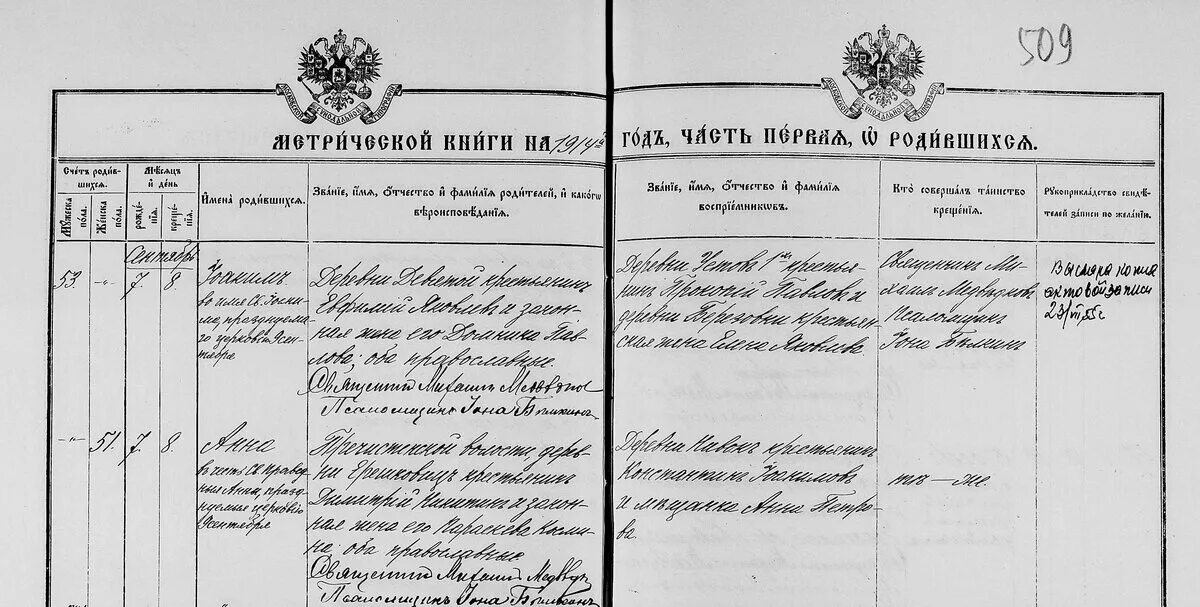 509
МЕТРИ́ЧЕСКОЙ КНИ́ГИ НА 1914 ГО́ДЪ, ЧА́СТЬ ПЕ́РВАЯ, Ѡ РОДИ́ВШИХСЯ.
Сче́тъ роди́в-
шихся.
Му́жеска
по́ла.
Же́нска
по́ла.
Мѣ́сяцъ
и҆ де́нь
рожде́-
нїя.
креще́-
нїя.
И҆мена̀ роди́вшихся.
Зва́нїе, и҆́мя, о҆́тчество и҆ фами́лїя роди́телей, и҆ како́гѡ
вѣроисповѣ́данїя.
Зва́нїе, и҆́мя, о҆́тчество и҆ фами́лїя
воспрїе́мниковъ.
Кто̀ соверша́лъ та́инство
креще́нїя.
Рукоприкла́дство свидѣ́-
телей за́писи по жела́нїю.
Сентябрь
53. -„- 7. 8.
Іоакимъ
во имя Св. Іоаки-
ма, празднуема-
го церковію 9 сен-
тября
Деревни Девятой крестьянинъ
Евфимій Яковлевъ и закон-
ная жена его Домника Пав-
лова; оба православные.
Священникъ Михаилъ
Псаломщикъ Іона
Деревни 1й кресть-
янинъ Прокопій Павловъ и
деревни Березовки крестьян-
ская жена Елена Яковлева
Священникъ Ми-
хаилъ Медвѣдковъ
Псаломщикъ
Іона
Выслана копия
актовой записи
23/VII, 55 г
-„- 51. 7. 8.
Анна
въ честь Св. Правед-
ныя Анны, празд-
нуемыя церковію
9 сентября
Пречистенской волости, дерев-
ни крестьянинъ
Димитрій Никитинъ и закон-
ная жена его Параскева
оба православные
Священникъ Михаилъ
Псаломщикъ Іона
Деревни крестьянинъ
Константинъ Іоакимовъ
и мѣщанка Анна Петро-
ва
тѣ-же